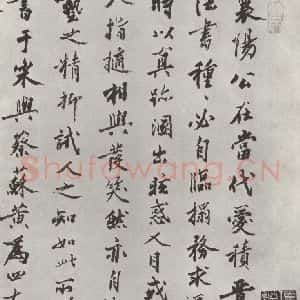 襄陽公在當代愛積晉
法書種種必自臨搨務求
時以真跡溷出眩惑人目或
人指擿相與發笑然亦自
藝之精抑試人之知如此
書于宋與蔡蘇黃為四大
Shufawang.CN